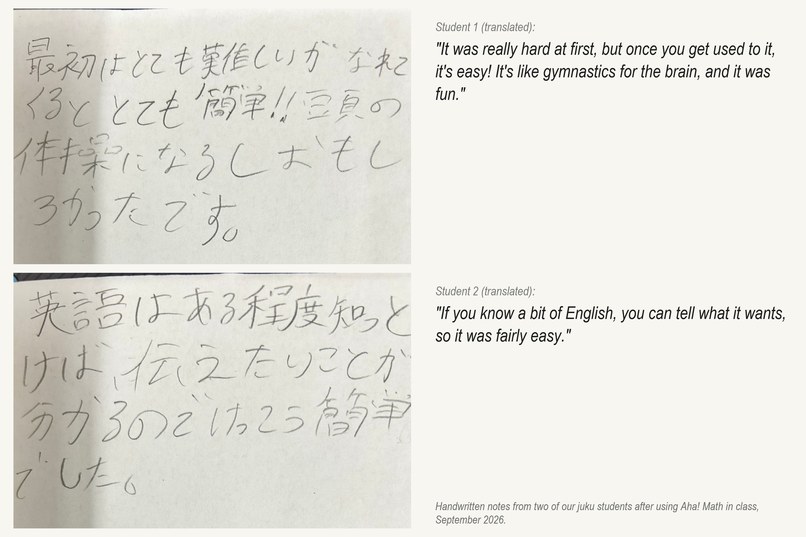 最初はとても難しいが なれて
くると とても 簡単!! 豆頁の
体操になるし おもし
ろかったです。
Student 1 (translated):
"It was really hard at first, but once you get used to it,
it's easy! It's like gymnastics for the brain, and it was
fun."
英語はある程度知っと
けば、伝えたいことが
分かるのでけっこう簡単
でした。
Student 2 (translated):
"If you know a bit of English, you can tell what it wants,
so it was fairly easy."
Handwritten notes from two of our juku students after using Aha! Math in class,
September 2026.